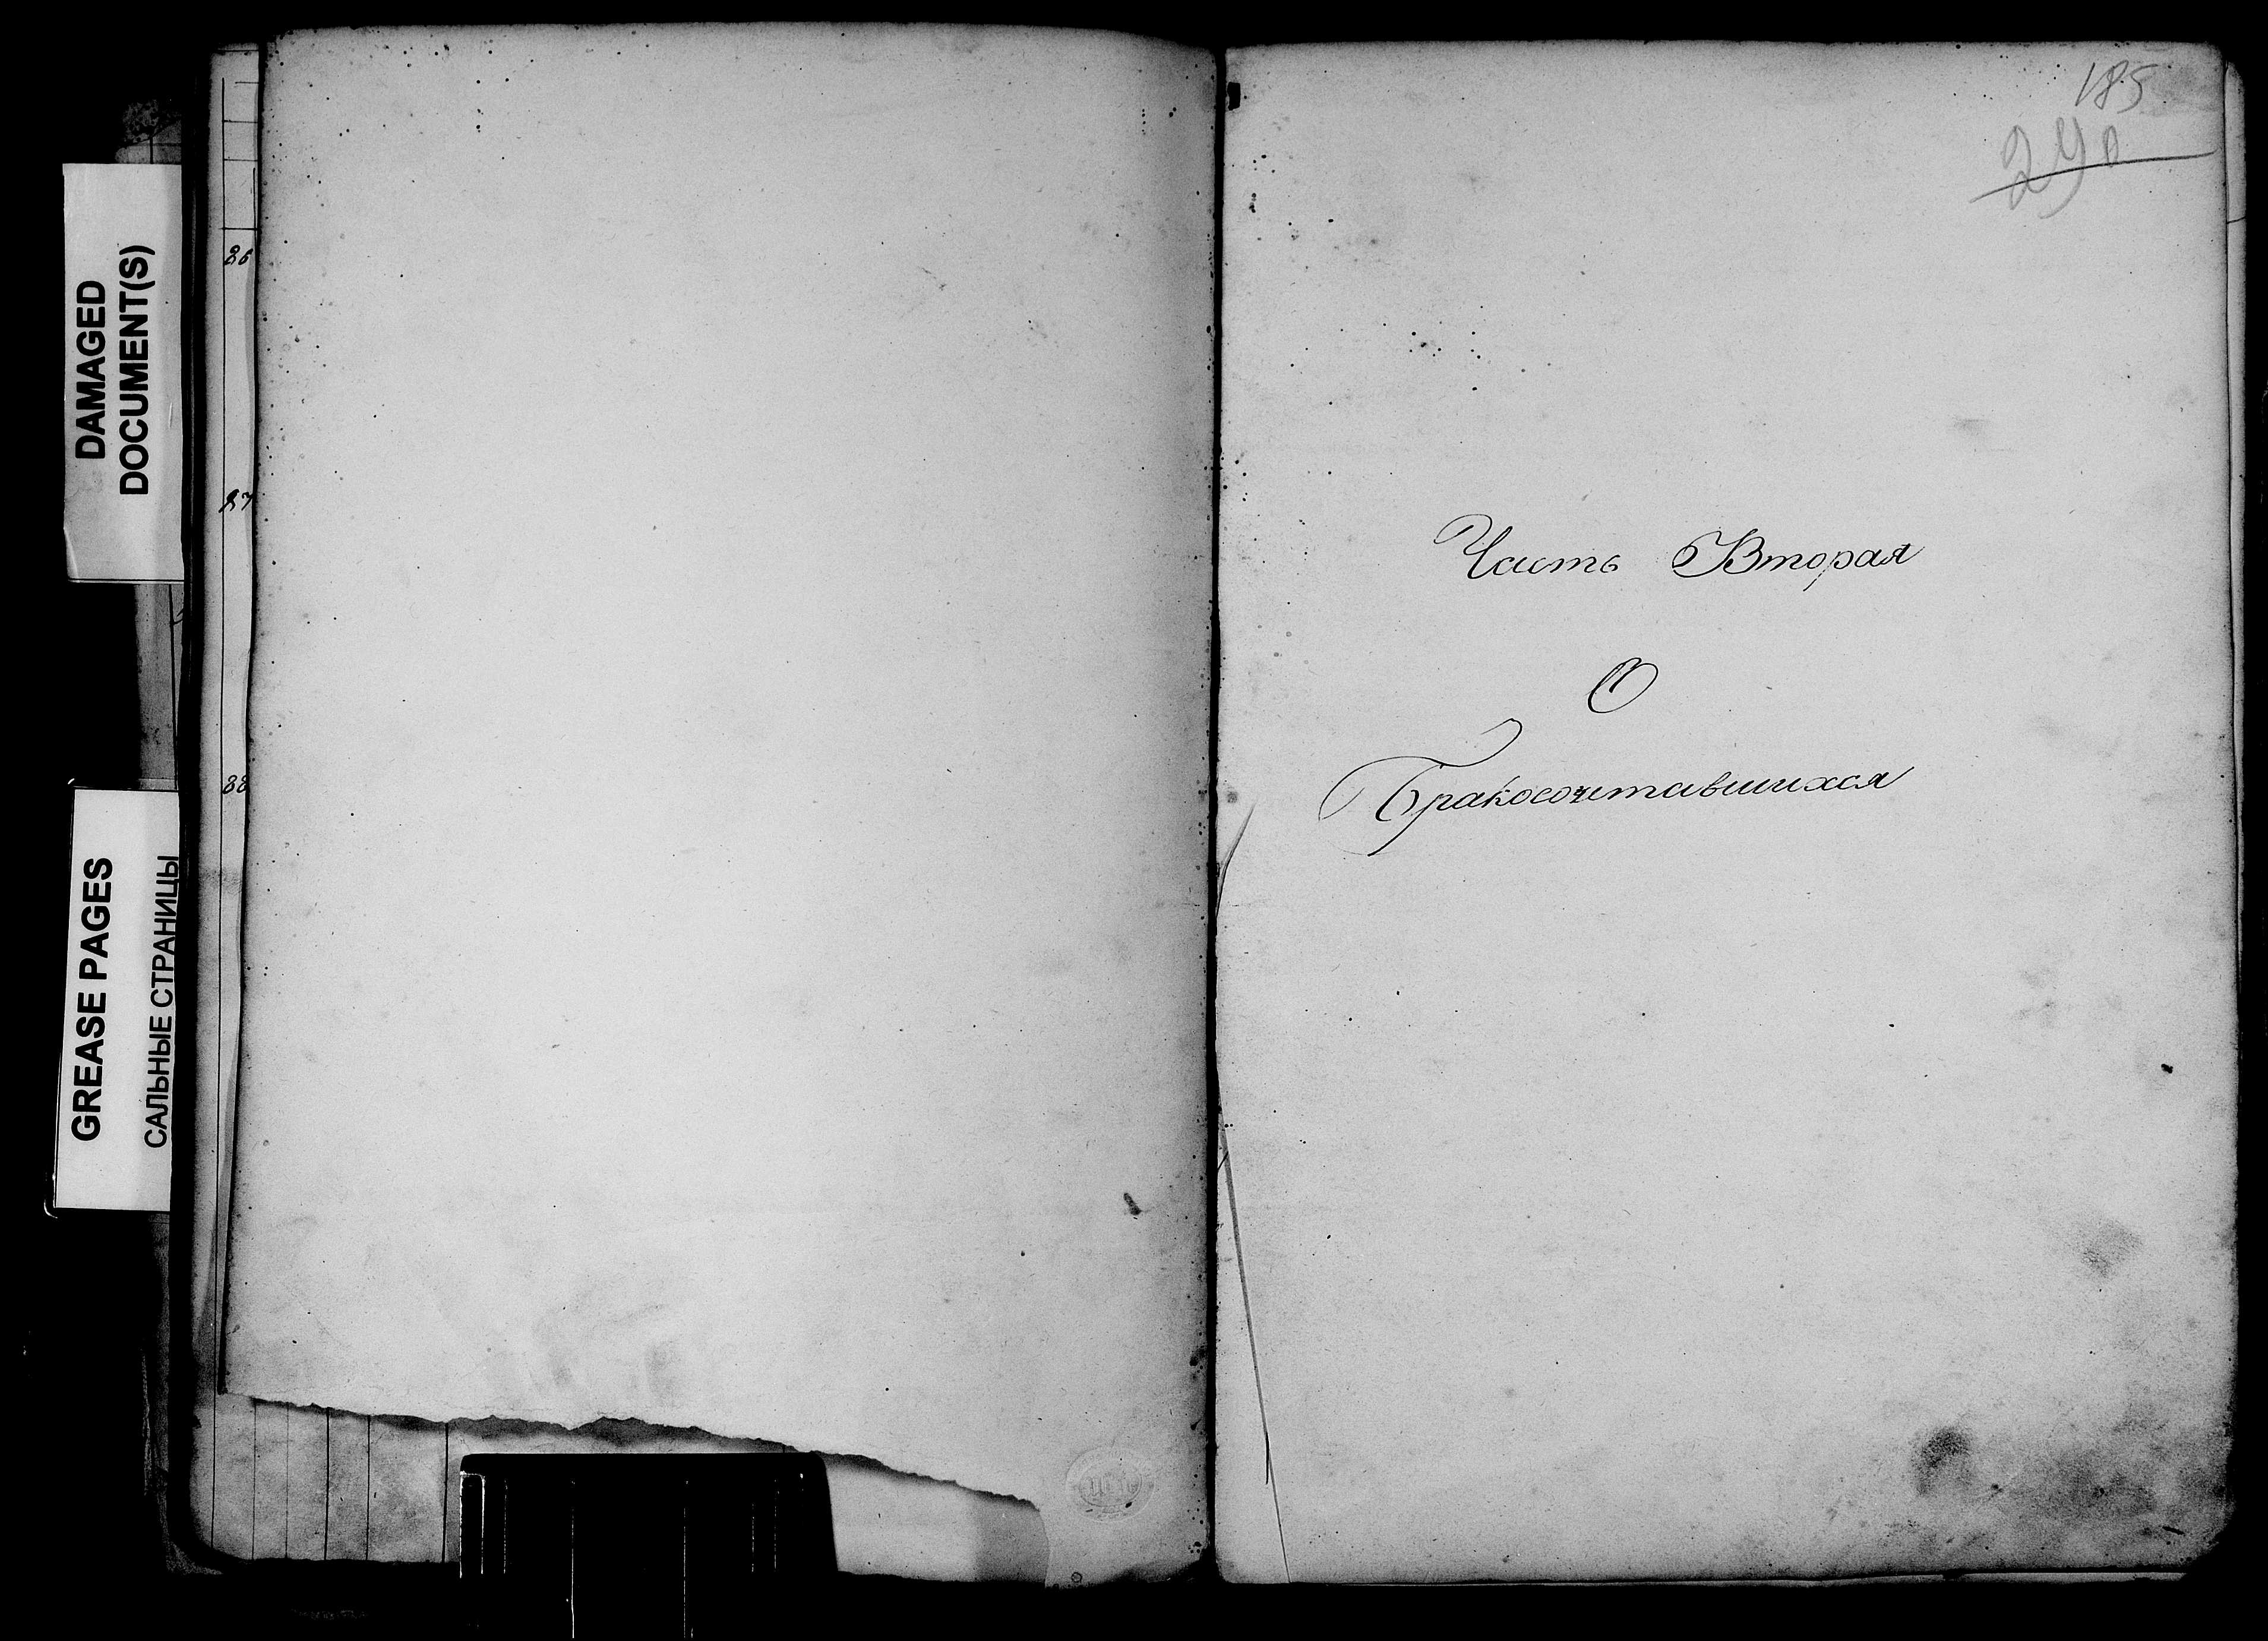 DAMAGED
DOCUMENT(S)
GREASE PAGES
САЛЬНЫЕ СТРАНИЦЫ
26
27
28
185
290
Часть Вторая
О
Бракосочетавшихся